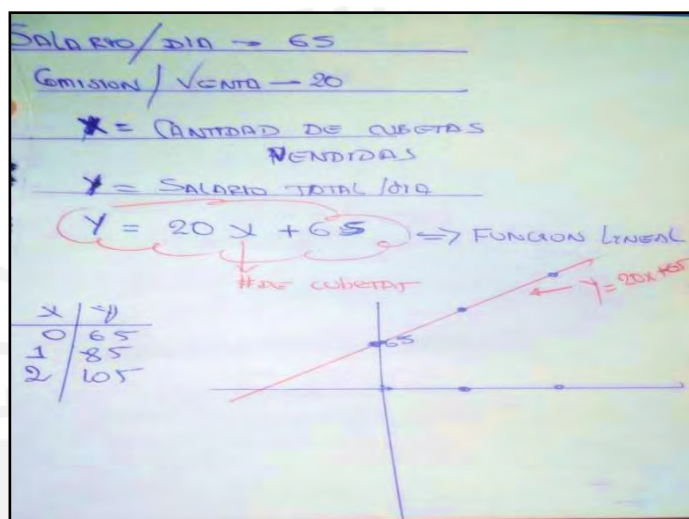 SALARIO/DIA → 65
COMISION/VENTA — 20
X = CANTIDAD DE CUBETAS
VENDIDAS
Y = SALARIO TOTAL/DIA
Y = 20 X + 65 => FUNCION LINEAL
# DE CUBETAS
Y = 20X+65
x | y
0 | 65
1 | 85
2 | 105
65